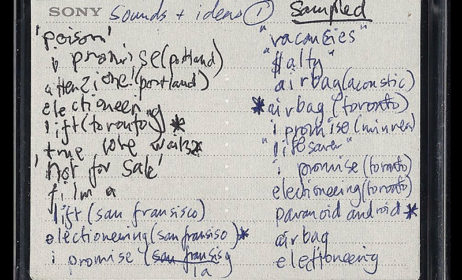 SONY sounds + ideas ①
'poison'
i promise (portland)
attenzione! (portland)
electioneering
lift (toronto) *
true love waits
'not for sale'
f. i'm a
lift (san fransisco)
electioneering (san fransiso) *
i promise (san fransis
la
Sampled
"vacancies"
"$alty"
airbag (acoustic)
* airbag (toronto)
i promise (minnea)
"lifesaver"
i promise (toronto)
electioneering (toronto)
paranoid android *
airbag
electioneering